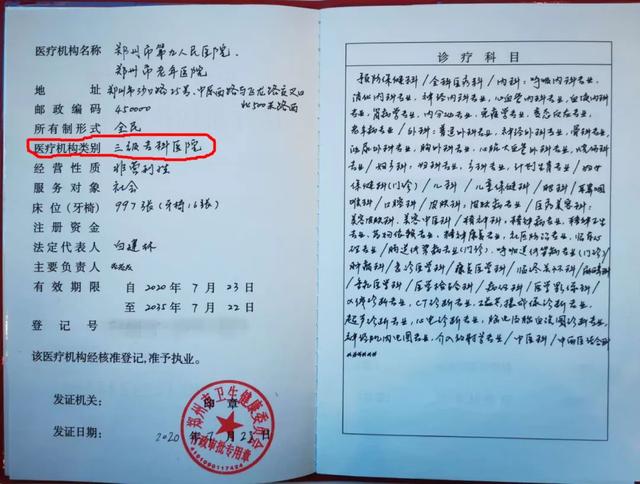 医疗机构名称 郑州市第九人民医院.
郑州市老年医院
地址 郑州市沙口路25号,中原西路与飞龙路交叉口
北500米路西
邮政编码 450000
所有制形式 全民
医疗机构类别 三级专科医院
经营性质 非营利性
服务对象 社会
床位(牙椅) 997张(牙椅:6张)
注册资金
法定代表人 白建林
主要负责人
有效期限 自 2020 年 7 月 23 日
至 2035 年 7 月 22 日
登记号
该医疗机构经核准登记,准予执业。
发证机关: 印章
发证日期: 2020 年 7 月 23 日
郑州市卫生健康委员会
行政审批专用章
4101090117424
诊疗科目
预防保健科/全科医疗科/内科:呼吸内科专业/
消化内科专业/神经内科专业/心血管内科专业/血液内科
专业/肾病学专业/内分泌专业/免疫学专业/变态反应专业/
老年病专业/外科:普通外科专业/神经外科专业/骨科专业/
泌尿外科专业/胸外科专业/心脏大血管外科专业/烧伤科
专业/妇产科:妇科专业/产科专业/计划生育专业/妇女
保健科(门诊)/儿科/儿童保健科/眼科/耳鼻咽
喉科/口腔科/皮肤科:皮肤病专业/医疗美容科:
美容皮肤科.美容中医科/精神科:精神病专业/精神卫生
专业/药物依赖专业/精神康复专业/社区防治专业/临床心
理专业/肠道传染病专业(门诊).呼吸道传染病专业(门诊)/
肿瘤科/急诊医学科/康复医学科/临终关怀科/麻醉科
/重症医学科/医学检验科/病理科/医学影像科/
X线诊断专业/CT诊断专业/磁共振成像诊断专业/
超声诊断专业/心电诊断专业/脑电及脑血流图诊断专业/
神经肌肉电图专业/介入放射学专业/中医科/中西医结合科